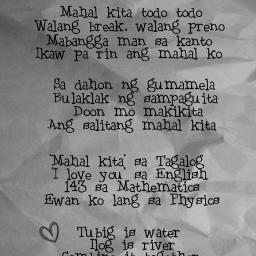 Mahal kita todo todo
Walang break. walang preno
Mabangga man sa kanto
Ikaw pa rin ang mahal ko
Sa dahon ng gumamela
Bulaklak ng sampaguita
Doon mo makikita
Ang salitang mahal kita
'Mahal kita' sa Tagalog
'I love you' sa English
143 sa Mathematics
Ewan ko lang sa Physics
Tubig is water
Ilog is river
Combine it together